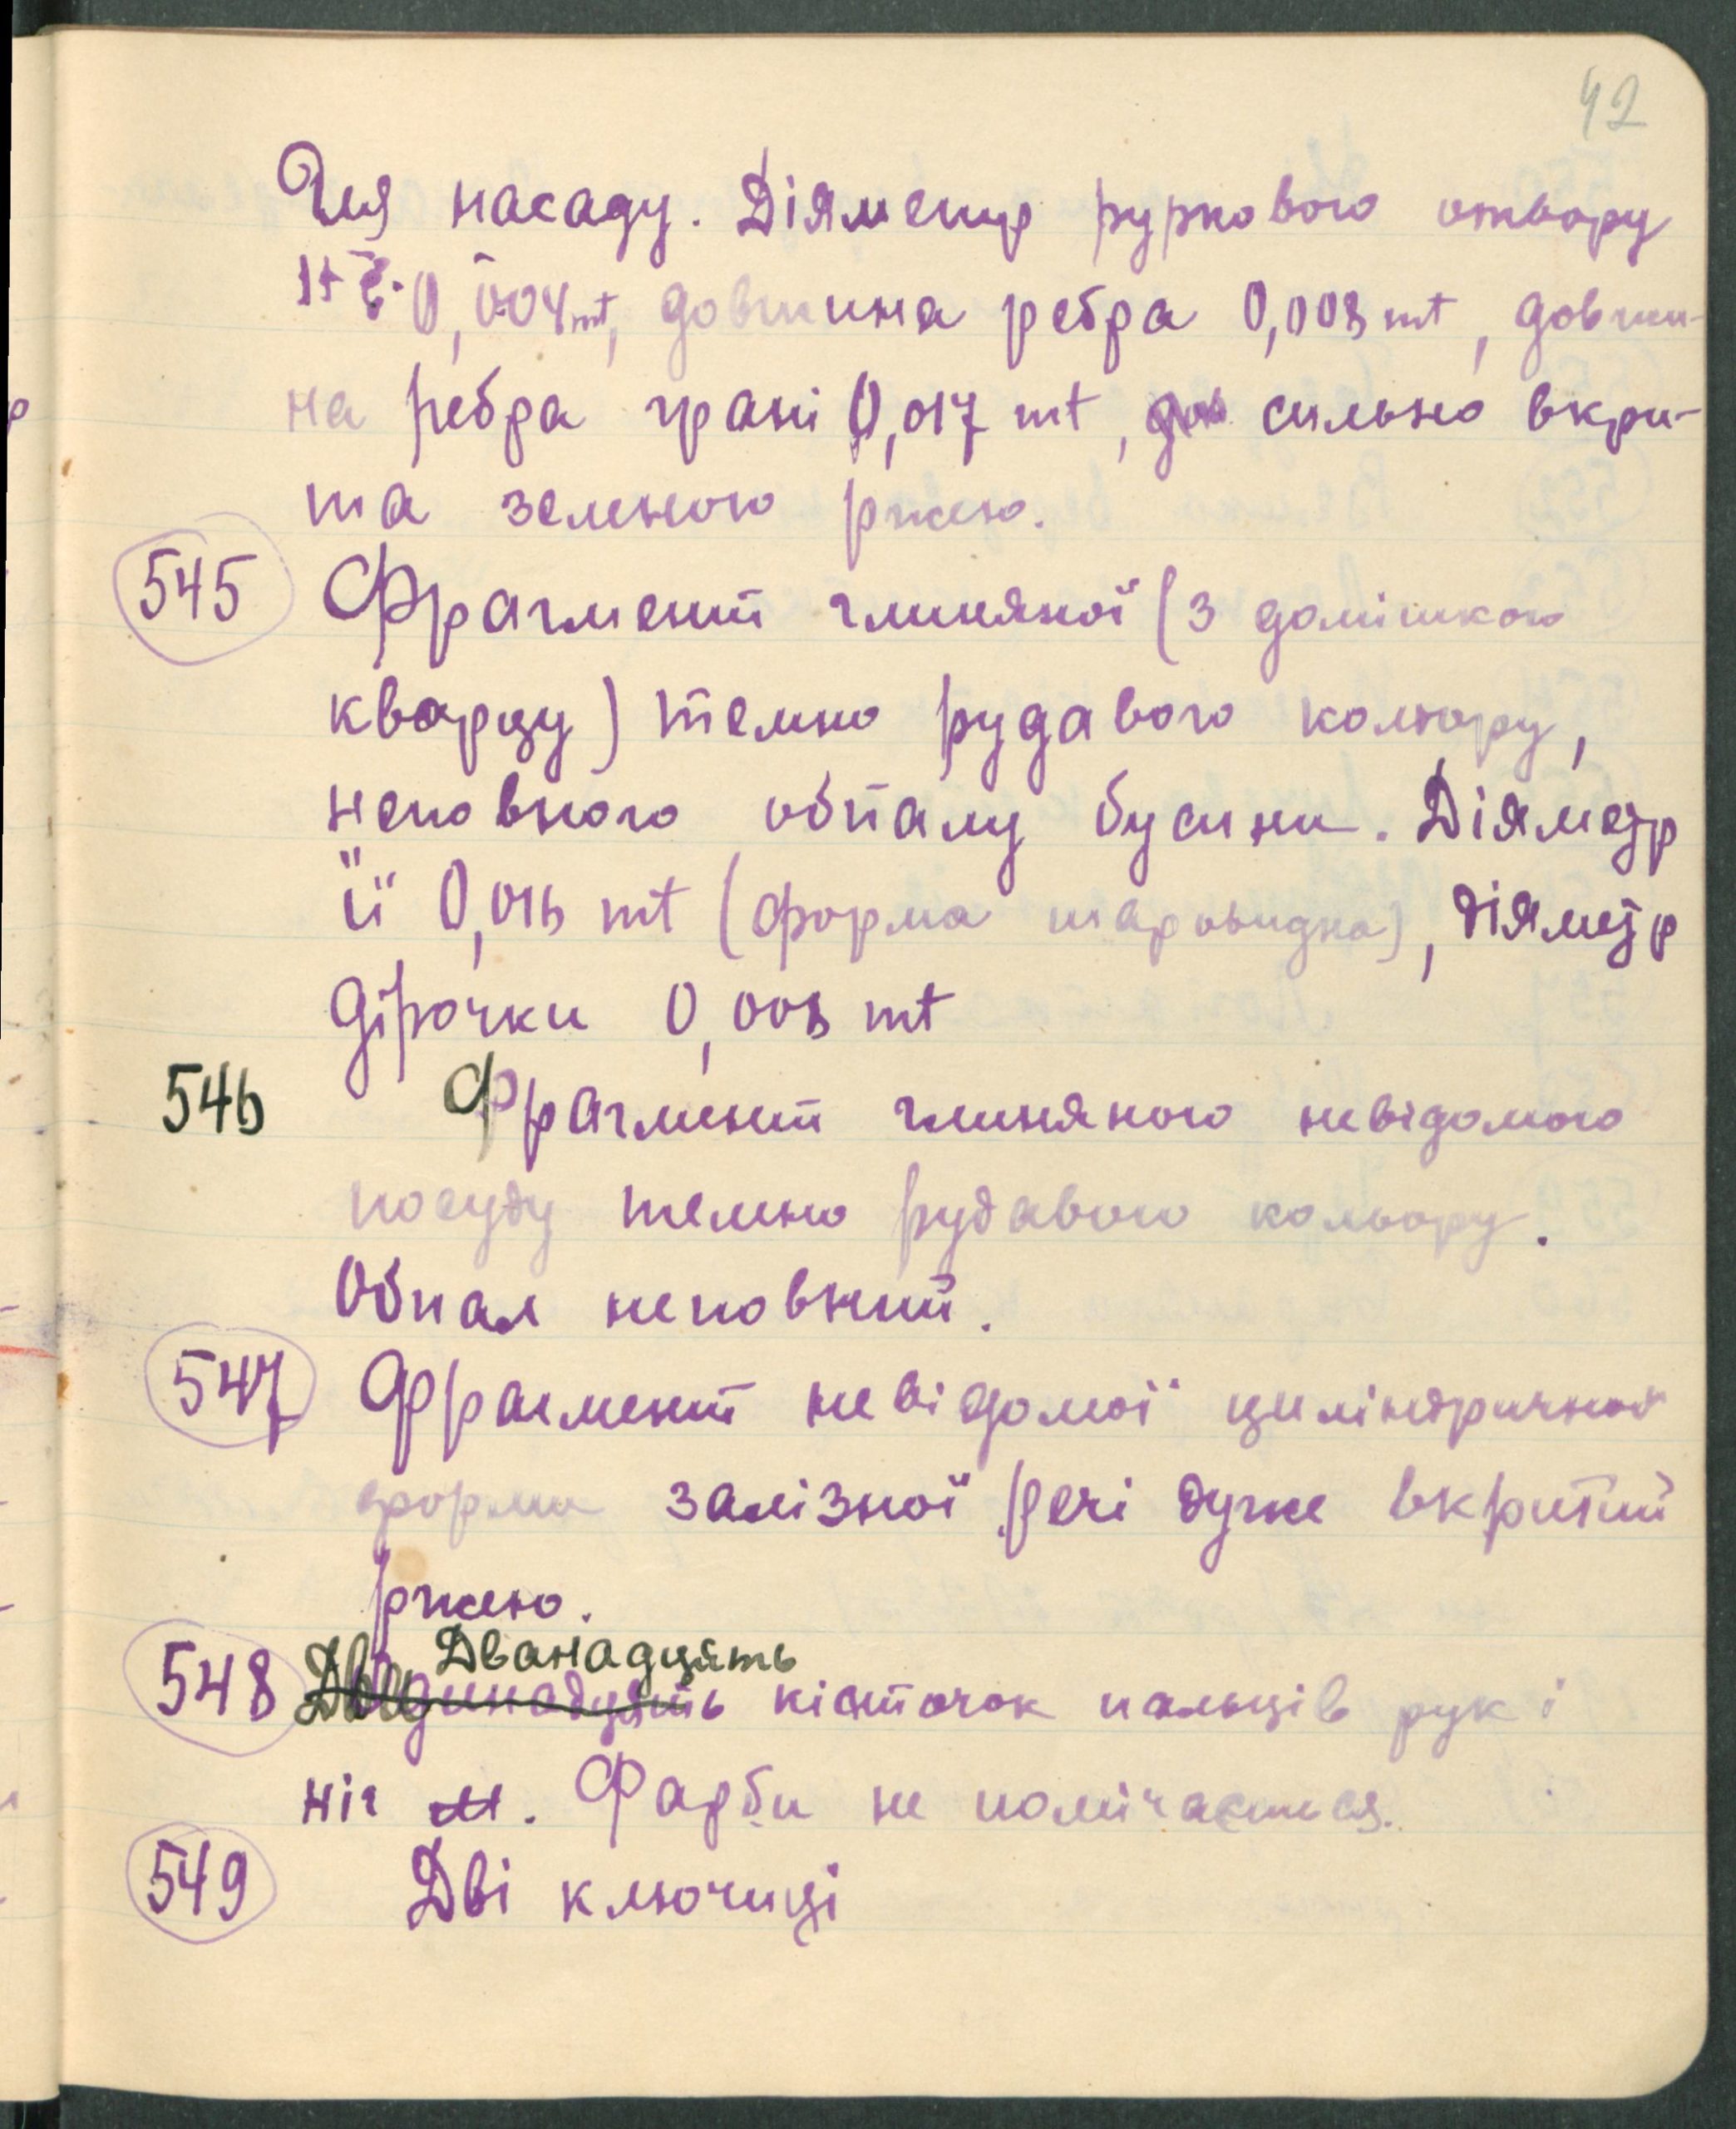 42
для насаду. Діяметр руркового отвору
0,004 mt, довжина ребра 0,008 mt, довжи-
на ребра грані 0,017 mt, сильно вкри-
та зеленою ржею.
545 Фрагмент глиняної (з домішкою
кварцу) темно рудавого кольору,
неповного обпалу бусини. Діяметр
її 0,016 mt (форма шаровидна), діяметр
дірочки 0,008 mt
546 Фрагмент глиняного невідомого
посуду темно рудавого кольору.
Обпал неповний.
547 Фрагмент невідомої циліндричної
форми залізної речі дуже вкритий
ржею.
Дванадцять
548 кісточок пальців рук і
ніг . Фарби не помічається.
549 Дві ключиці